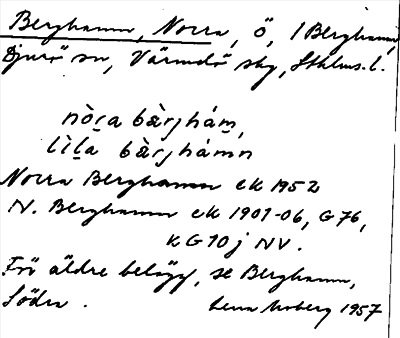 Berghamn, Norra, ö, i Berghamn,
Djurö sn, Värmdö skg, Sthlms. l.
nòra bàrjhám,
lìla bàrjhámn
Norra Berghamn ek 1952
N. Berghamn ek 1901-06, G 76,
kG 10 j NV.
För äldre belägg, se Berghamn,
Södra.
Lena Moberg 1957